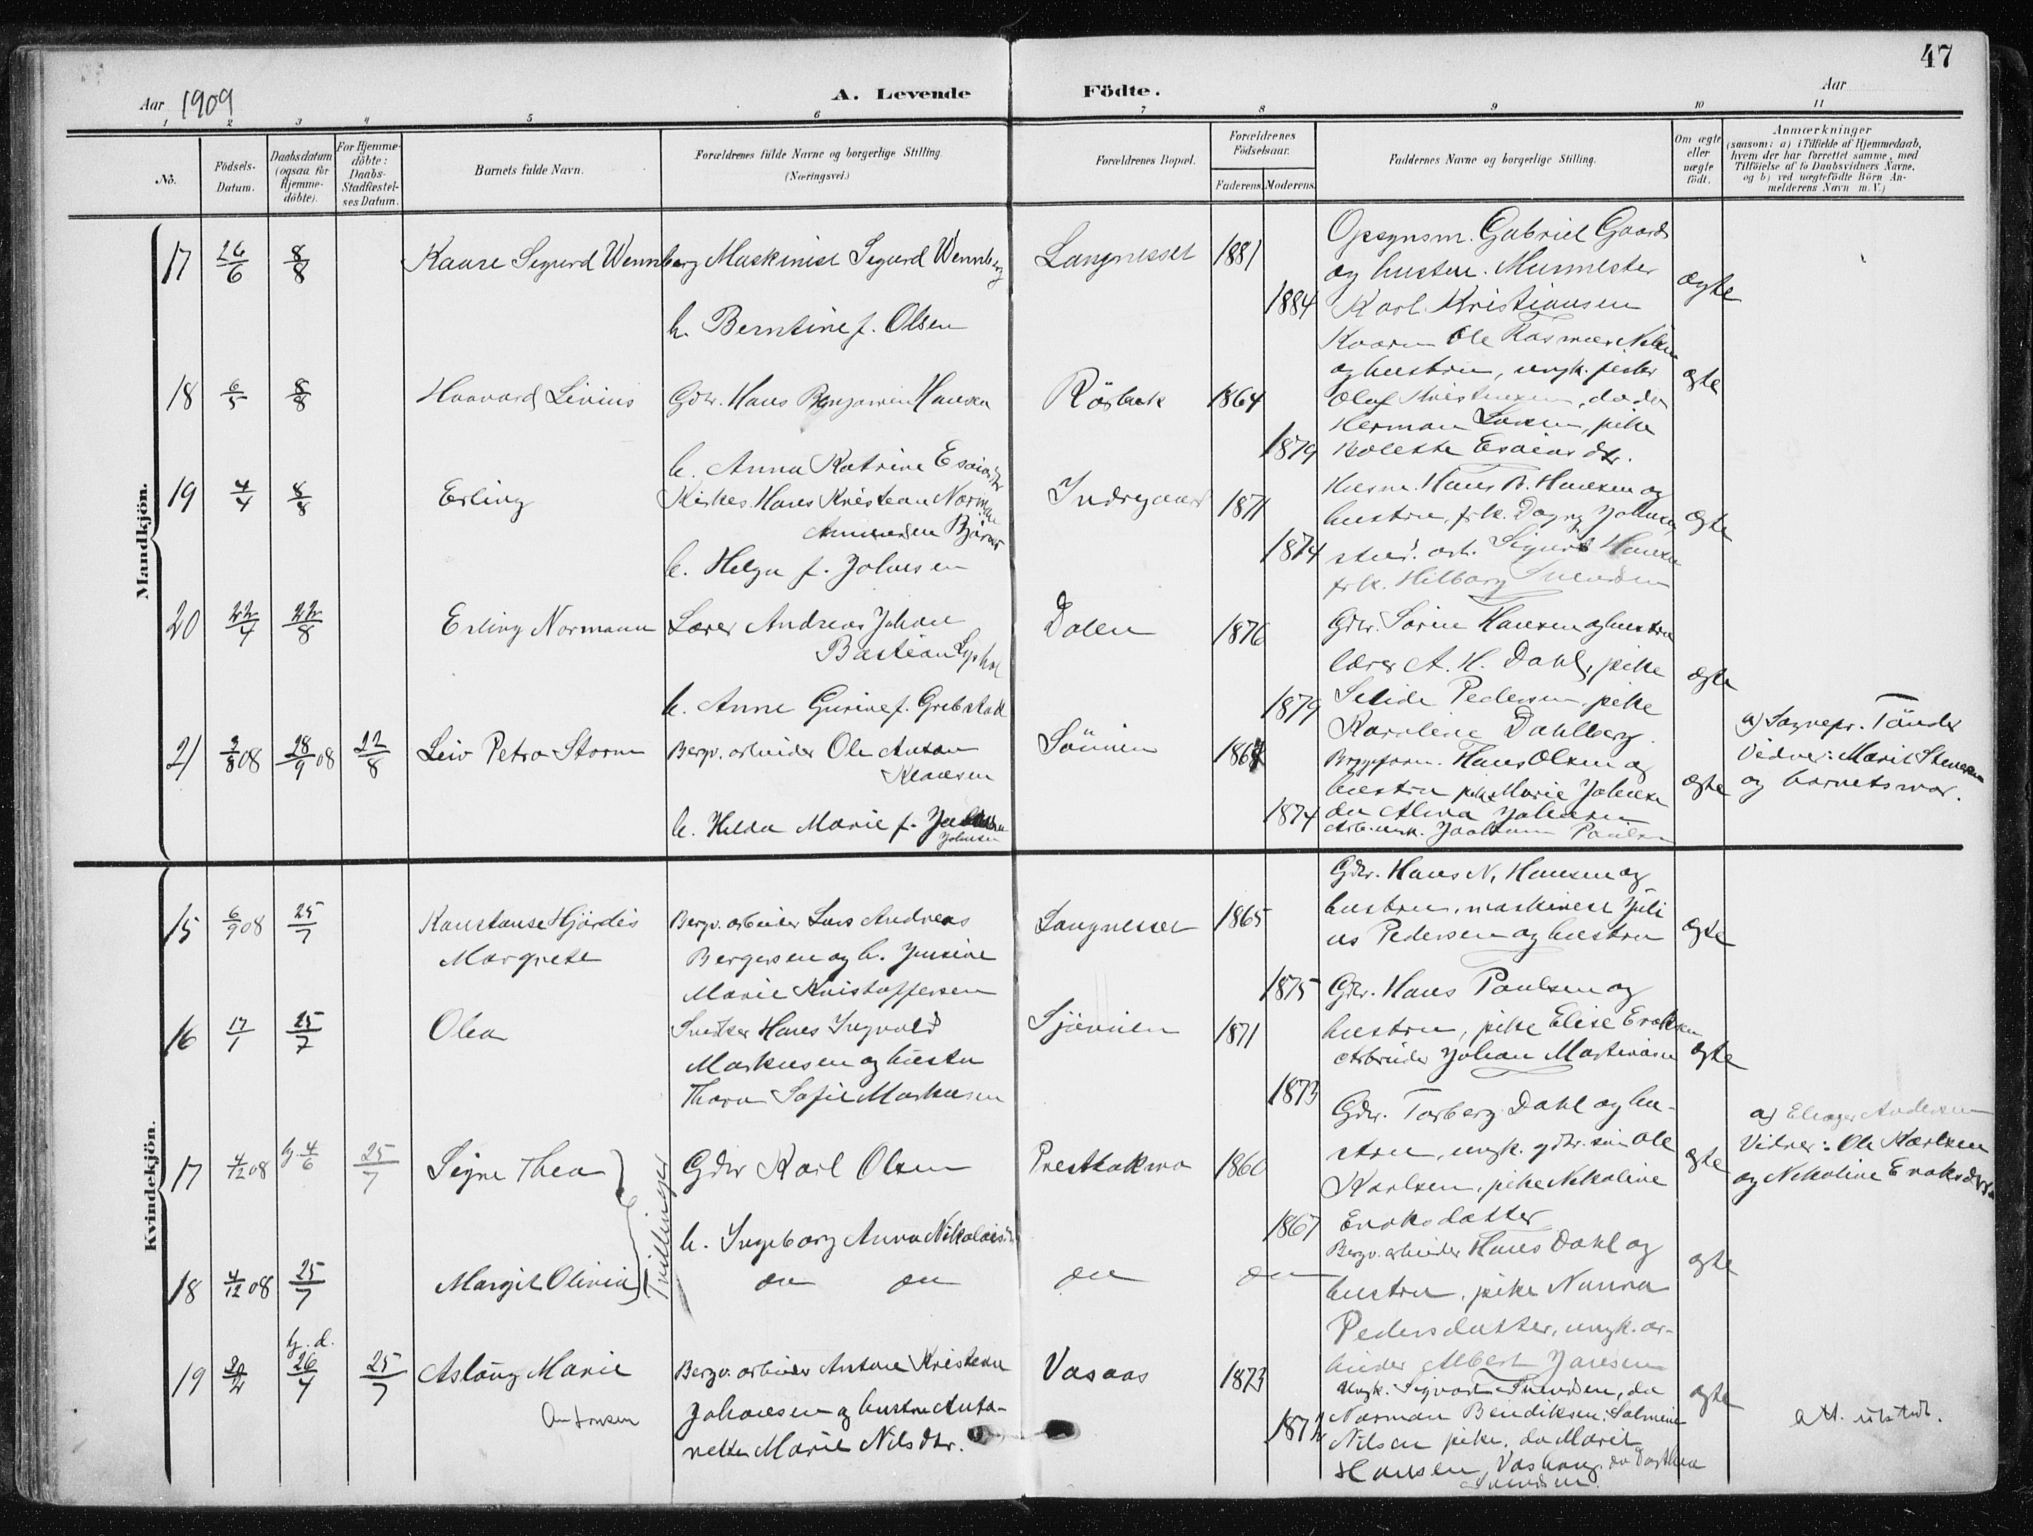 47
Aar 1909
A. Levende Födte.
Aar
1 2 3 4 5 6 7 8 9 10 11
No.
Födsels-
Datum.
Daabsdatum
(ogsaa for
Hjemme-
döbte).
For Hjemme-
döbte:
Daabs-
Stadfæstel-
ses Datum.
Barnets fulde Navn.
Forældrenes fulde Navne og borgerlige Stilling.
(Næringsvei.)
Forældrenes Bopæl.
Forældrenes
Födselsaar.
Faderens. Moderens.
Faddernes Navne og borgerlige Stilling.
Om ægte
eller
uægte
födt.
Anmærkninger
(saasom: a) i Tilfælde af Hjemmedaab,
hvem der har forrettet samme, med
Tilföielse af to Daabsvidners Navne,
og b) ved uægtefödte Börn An-
melderens Navn m. V.)
Mandkjön.
17 26/6 8/8 Kaare Sigurd Wennberg Maskinist Sigurd Wennberg Langnesset 1881
h. Berntine f. Olsen 1884
Opsynsm. Gabriel Gaard
og hustru. Murmester
Karl Kristiansen
ægte
18 6/5 8/8 Haavard Livius Gdbr. Hans Benjamin Hansen Rösbak 1864
h. Anna Katrine Esaiasdtr 1879
Ole Rasmus Nilsen
og hustru, ungk. fisker
Olaf
Herman Larsen, pike
Kolette Esaiasdtr.
ægte
19 4/4 8/8 Erling Kirkes. Hans Kristian Norman
Amundsen
h. Helga f. Johnsen
Indregaard 1871
1874
Hans B. Hansen og
hustru, frk. Dagny Johnsen
stud. art. Sigurd Hansen
frk. Hilborg Svendsen
ægte
20 22/4 22/8 Erling Normann Lærer Andreas Johan
Bastian
h. Anne Gurine f. Grebstad
Dalen 1876
1879
Gdbr. Sören Hansen og hustru
lærer A. H. Dahl, pike
Selide Pedersen, pike
Karoline Dahlberg.
ægte
21 2/8 08 28/9 08 22/8 Leiv Petro Storm Bergv. arbeider Ole Anton
Klausen
h. Helda Marie f.
Johnsen
1868
1874
Hans Olsen og
hustru pike Marie Johnsen
do Alma Johansen
Arb. ungk. Joakim Paulsen
ægte
a) Sognepr. Tönder
Vidner: Marit Stenersen
og barnets mor.
Kvindekjön.
15 6/9 08 25/7 Konstanse Hjördis
Margrete
Bergv. arbeider Lars Andreas
Bergersen og h. Jensine
Marie Kristoffersen
Langnesset 1865
1875
Gdbr. Hans N. Hansen og
hustru, maskinist Juli
us Pedersen og hustru
ægte
16 17/1 25/7 Olea
Snekker Hans Ingvald
Markusen og hustru
Thora Sofie Markusen
Sjömien 1871
1873
Gdbr. Hans Paulsen og
hustru, pike Elise Enoksen
Arbeider Johan Martinsen
ægte
17 4/12 08 hj. 4/6 25/7 Signe Thea
Gdbr Karl Olsen
h. Ingeborg Anna Nikolaisdtr
Prestakma 1860
1867
Gdbr. Torberg Dahl og hu-
stru, ungk. gdbr. sön Ole
Karlsen, pike Nikoline
Enoksdatter
ægte
a) Andersen
Vidner: Ole Karlsen
og Nikoline Enoksdtr
Tvillinger
18 4/12 08 25/7 Margit Olivia do do do do
Bergv. arbeider Hans Dahl og
hustru, pike Nanna
Pedersdatter, ungk. ar-
beider Albert Jansen
ægte
19 hj. d. 26/4 25/7 Aslaug Marie
Antonsen
Bergv. arbeider Anton Kristian
Johansen og hustru Anto-
nette Marie Nilsdtr.
Vasaas 1873
1872
Ungk. Sigvart Svendsen, do
Norman Bendiksen, Salmine
Nilsen pike, do Marit
Hansen, Vashaug, do Dorthea
Svendsen.
ægte
att. utstedt.